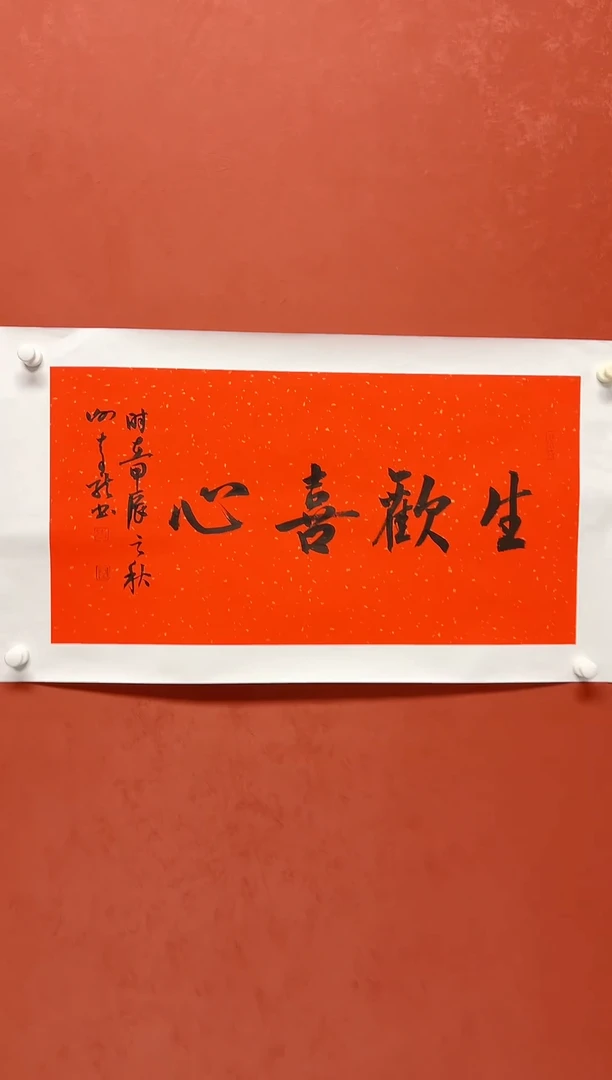 生歡喜心
时在甲辰之秋